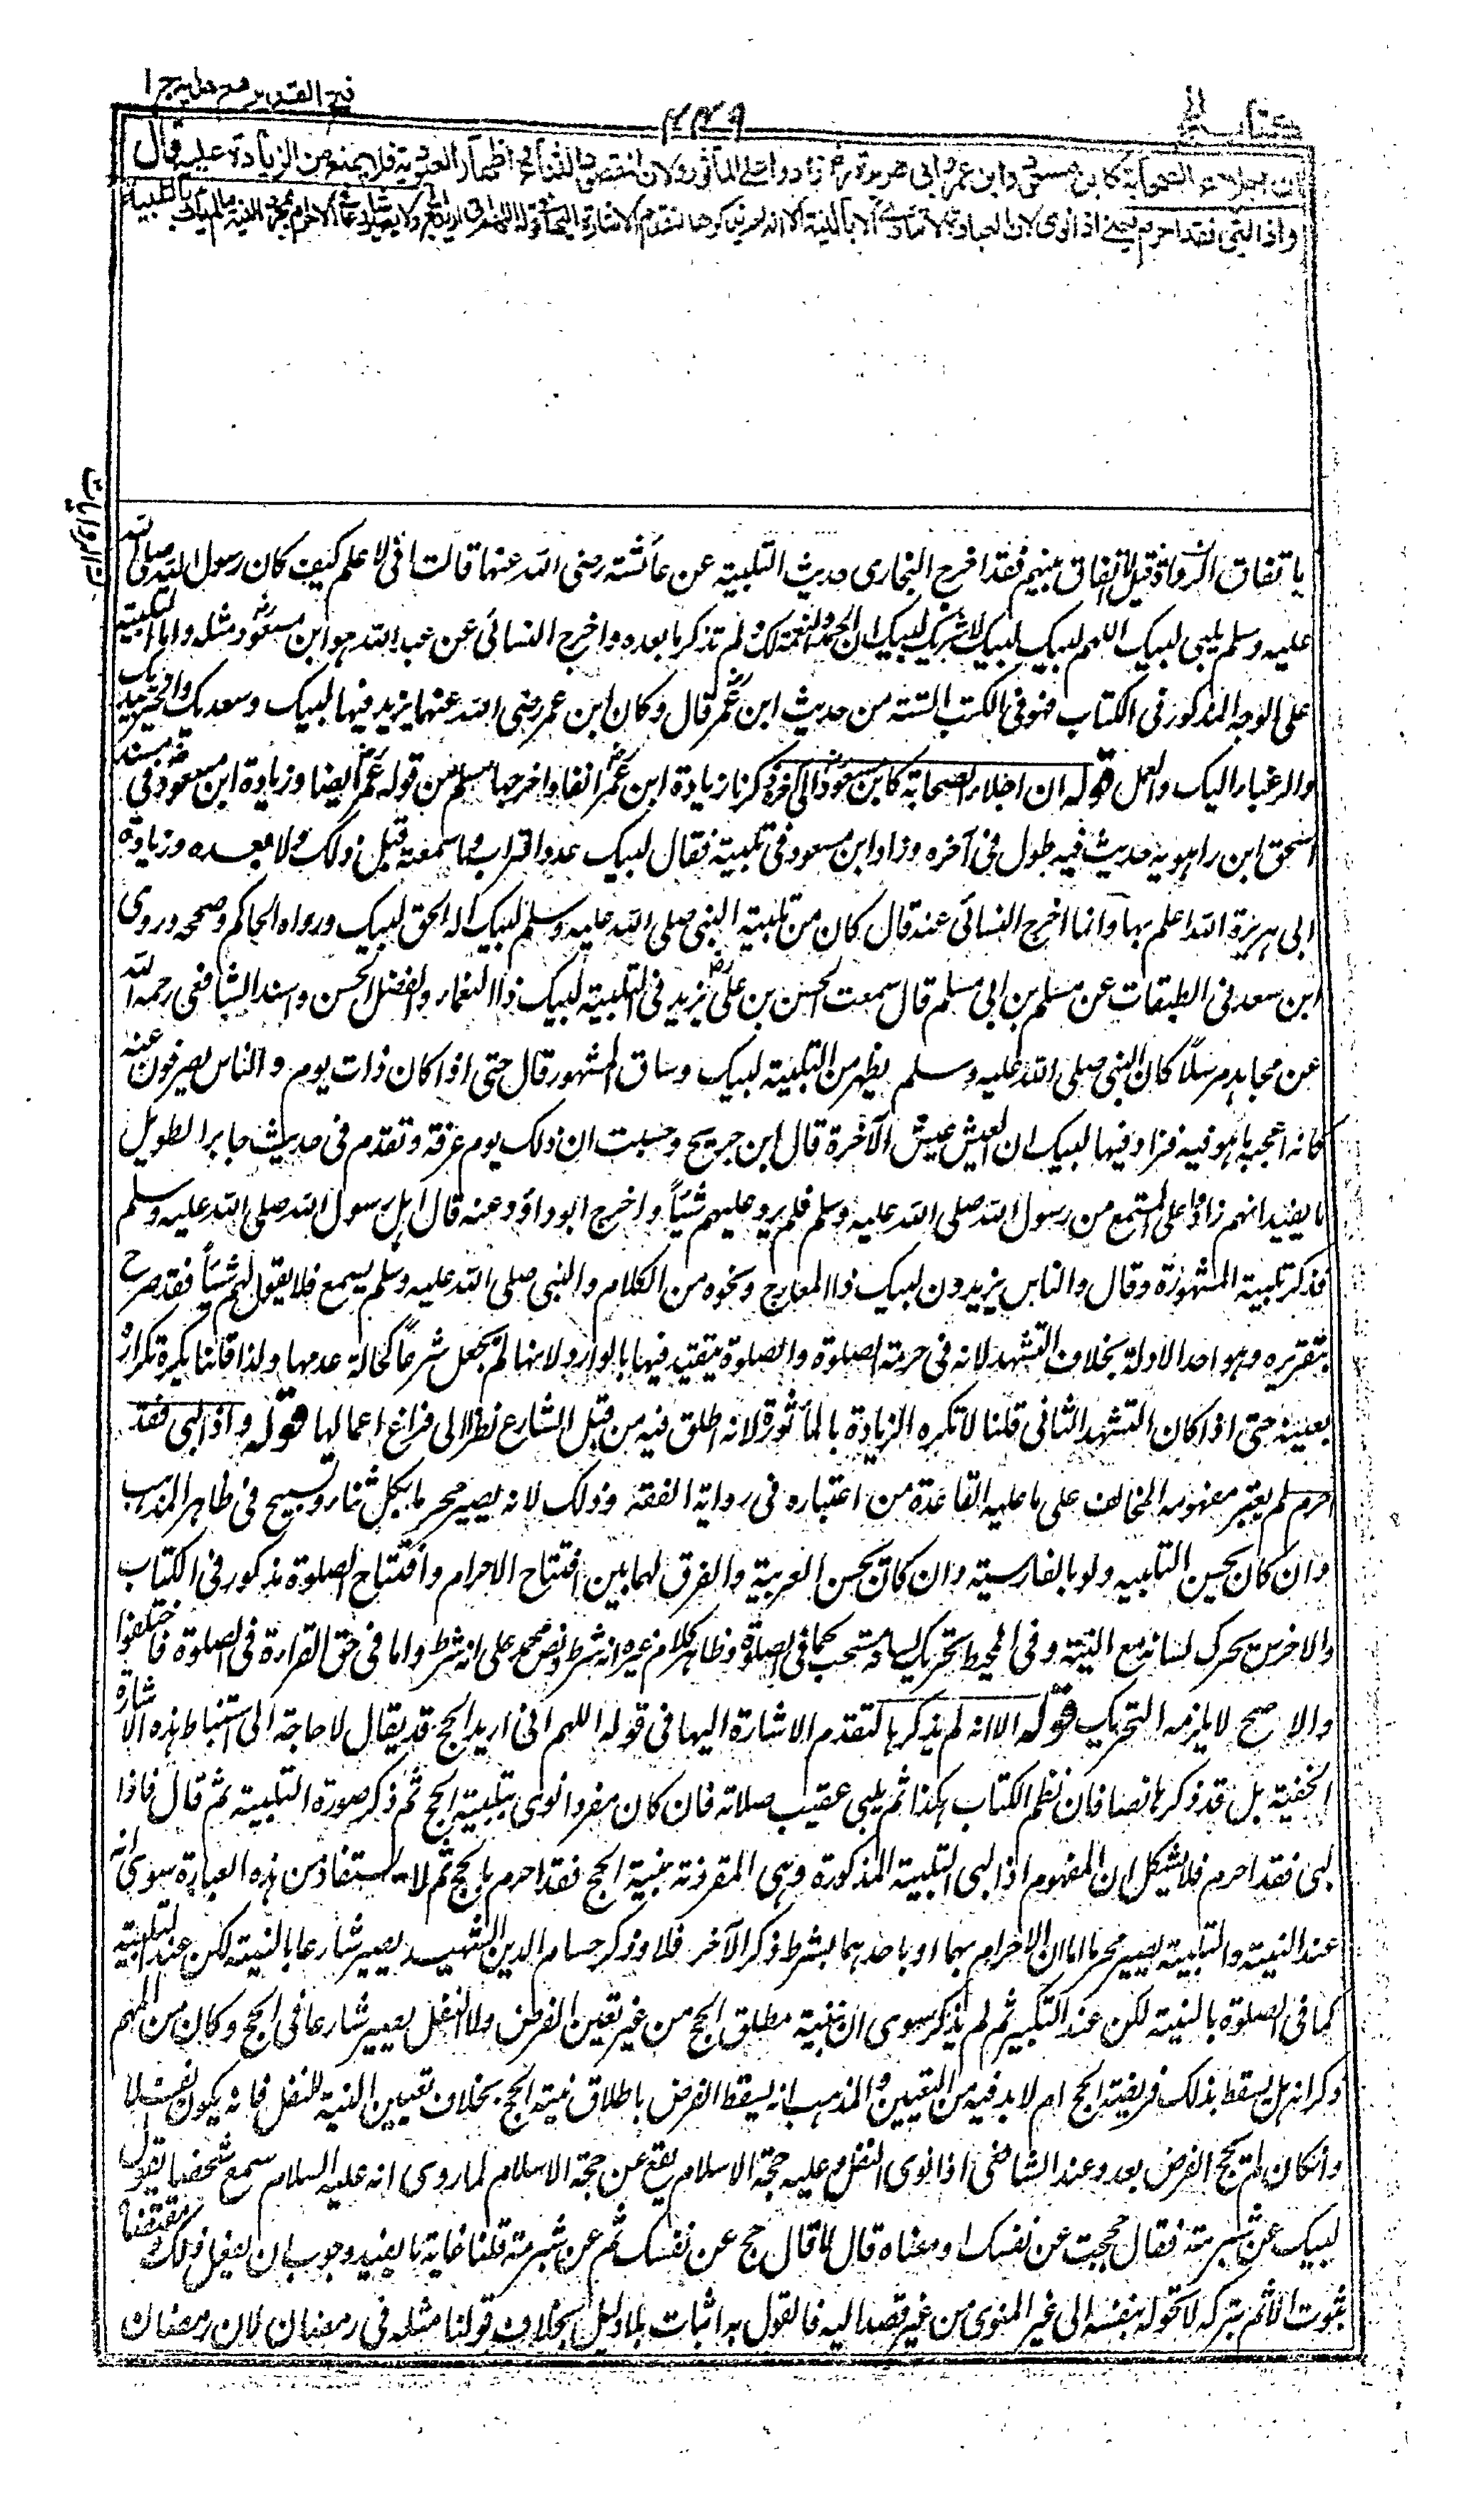 فتح القدير مع هدايه جرا
٤٤٩
كتاب الحج
ان اجلاء الصحابة كابن مسعود وابن عمر وابي هريرة رض زادوا على المأثور ولان المقصود الثناء واظهار العبودية فلا يمنع من الزيادة عليه قال
واذا لبى فقد احرم يعني اذا نوى لان العبادة لا تتأدى الا بالنية الا انه لم يذكرها لتقدم الاشارة اليها في قوله اللهم اني اريد الحج ولا يصير شارعا في الاحرام بمجرد النية ما لم يأت بالتلبية
باتفاق الرواة قيل لا اتفاق بينهم فقد اخرج البخارى حديث التلبية عن عائشة رضى الله عنها قالت انى لا علم كيف كان رسول الله صلى الله
عليه وسلم يلبى لبيك اللهم لبيك لبيك لا شريك لك لبيك ان الحمد والنعمة لك ولم تذكر ما بعده واخرج النسائى عن عبد الله هو ابن مسعود رض مثله واما التلبية
على الوجه المذكور فى الكتاب فهو فى الكتب الستة من حديث ابن عمر رض قال وكان ابن عمر رضى الله عنهما يزيد فيها لبيك وسعديك والخير بيديك
والرغباء اليك والعمل قوله ان اجلاء الصحابة كابن مسعود رض الى آخره ذكرنا زيادة ابن عمر رض انفا واخرجها مسلم من قوله عمر رض ايضا وزيادة ابن مسعود رض فى مسند
اسحق ابن راهويه حديث فيه طول فى آخره وزاد ابن مسعود فى تلبيته فقال لبيك عدد التراب وما سمعته قبل ذلك ولا بعده وزيادة
ابى هريرة الله اعلم بها وانما اخرج النسائى عنه قال كان من تلبية النبى صلى الله عليه وسلم لبيك اله الحق لبيك ورواه الحاكم وصححه وروى
ابن سعد فى الطبقات عن مسلم بن ابى مسلم قال سمعت الحسن بن على رض يزيد فى التلبية لبيك ذا النعماء والفضل الحسن واسند الشافعى رحمه الله
عن مجاهد مرسلاً كان النبى صلى الله عليه وسلم يظهر من التلبية لبيك وساق المشهور قال حتى اذا كان ذات يوم والناس يصرفون عنه
كانه اعجبه ما هو فيه فزاد فيها لبيك ان العيش عيش الآخرة قال ابن جريج وحسبت ان ذلك يوم عرفة وتقدم فى حديث جابر الطويل
ما يفيد انهم زادوا على المستمع من رسول الله صلى الله عليه وسلم فلم يرد عليهم شيئاً واخرج ابو داؤد عنه قال اهل رسول الله صلى الله عليه وسلم
فذكر تلبية المشهورة وقال والناس يزيدون لبيك ذا المعارج ونحوه من الكلام والنبى صلى الله عليه وسلم يسمع فلا يقول لهم شيئاً فقد صرح
بتقريره وهو احد الادلة بخلاف التشهد لانه فى حرمة الصلوة والصلوة يتقيد فيها بالوارد لانها لم تجعل شرعاً كحالة عدمها ولذا قلنا يكره تكراره
بعينه حتى اذا كان التشهد الثانى قلنا لا تكره الزيادة بالمأثورة لانه اطلق فيه من قبل الشارع نظرا الى فراغ اعمالها قوله واذا لبى فقد
احرم لم يعتبر مفهومه المخالف على ما عليه القاعدة من اعتباره فى رواية الفقه وذلك لانه يصير محرما بكل ثناء وتسبيح فى ظاهر المذهب
وان كان يحسن التلبيه ولو بالفارسية وان كان يحسن العربية والفرق لهما بين افتتاح الاحرام وافتتاح الصلوة مذكور فى الكتاب
والاخرس يحرك لسانه مع النية وفى المحيط تحريك لسانه مستحب كما فى الصلوة وظاهر كلام غيره انه شرط ونص محمد على انه شرط واما فى حق القراءة فى الصلوة فاختلفوا
والاصح لا يلزمه التحريك قوله الا انه لم يذكرها لتقدم الاشارة اليها فى قوله اللهم انى اريد الحج قد يقال لا حاجة الى استنباط هذه الاشارة
الخفية بل قد ذكرها نصا فان نظم الكتاب هكذا ثم يلبى عقيب صلاته فان كان مفردا نوى بتلبيته الحج ثم ذكر صورة التلبية ثم قال فاذا
لبى فقد احرم فلا يشكل ان المفهوم اذا لبى التلبية المذكورة وهى المقرونة بنية الحج فقد احرم بالحج ثم لا يستفاد من هذه العبارة سوى انه
عند النية والتلبية يصير محرما اما ان الاحرام بهما او باحدهما بشرط ذكر الآخر فلا وذكر حسام الدين الشهيد يصير شارعا بالنية لكن عند التلبية
كما فى الصلوة بالنية لكن عند التكبير ثم لم يذكر سوى ان بنية مطلق الحج من غير تعيين الفرض ولا النفل يصير شارعا فى الحج وكان من المهم
ذكر انه هل يسقط بذلك فريضة الحج ام لا بد فيه من التعيين والمذهب انه يسقط الفرض باطلاق نية الحج بخلاف تعيين النية للنفل فانه يكون نفلا
وانكان لم يحج الفرض بعد وعند الشافعى اذا نوى النفل وعليه حجة الاسلام يقع عن حجة الاسلام لما روى انه عليه السلام سمع شخصا يقول
لبيك عن شبرمة فقال حججت عن نفسك او معناه قال لا قال حج عن نفسك ثم عن شبرمة قلنا غاية ما يفيد وجوب ان يفعل ذلك ومقتضاه
ثبوت الاثم بتركه لا تحوله بنفسه الى غير المنوى من غير قصد اليه فالقول به اثبات بلا دليل بخلاف قولنا مثله فى رمضان لان رمضان